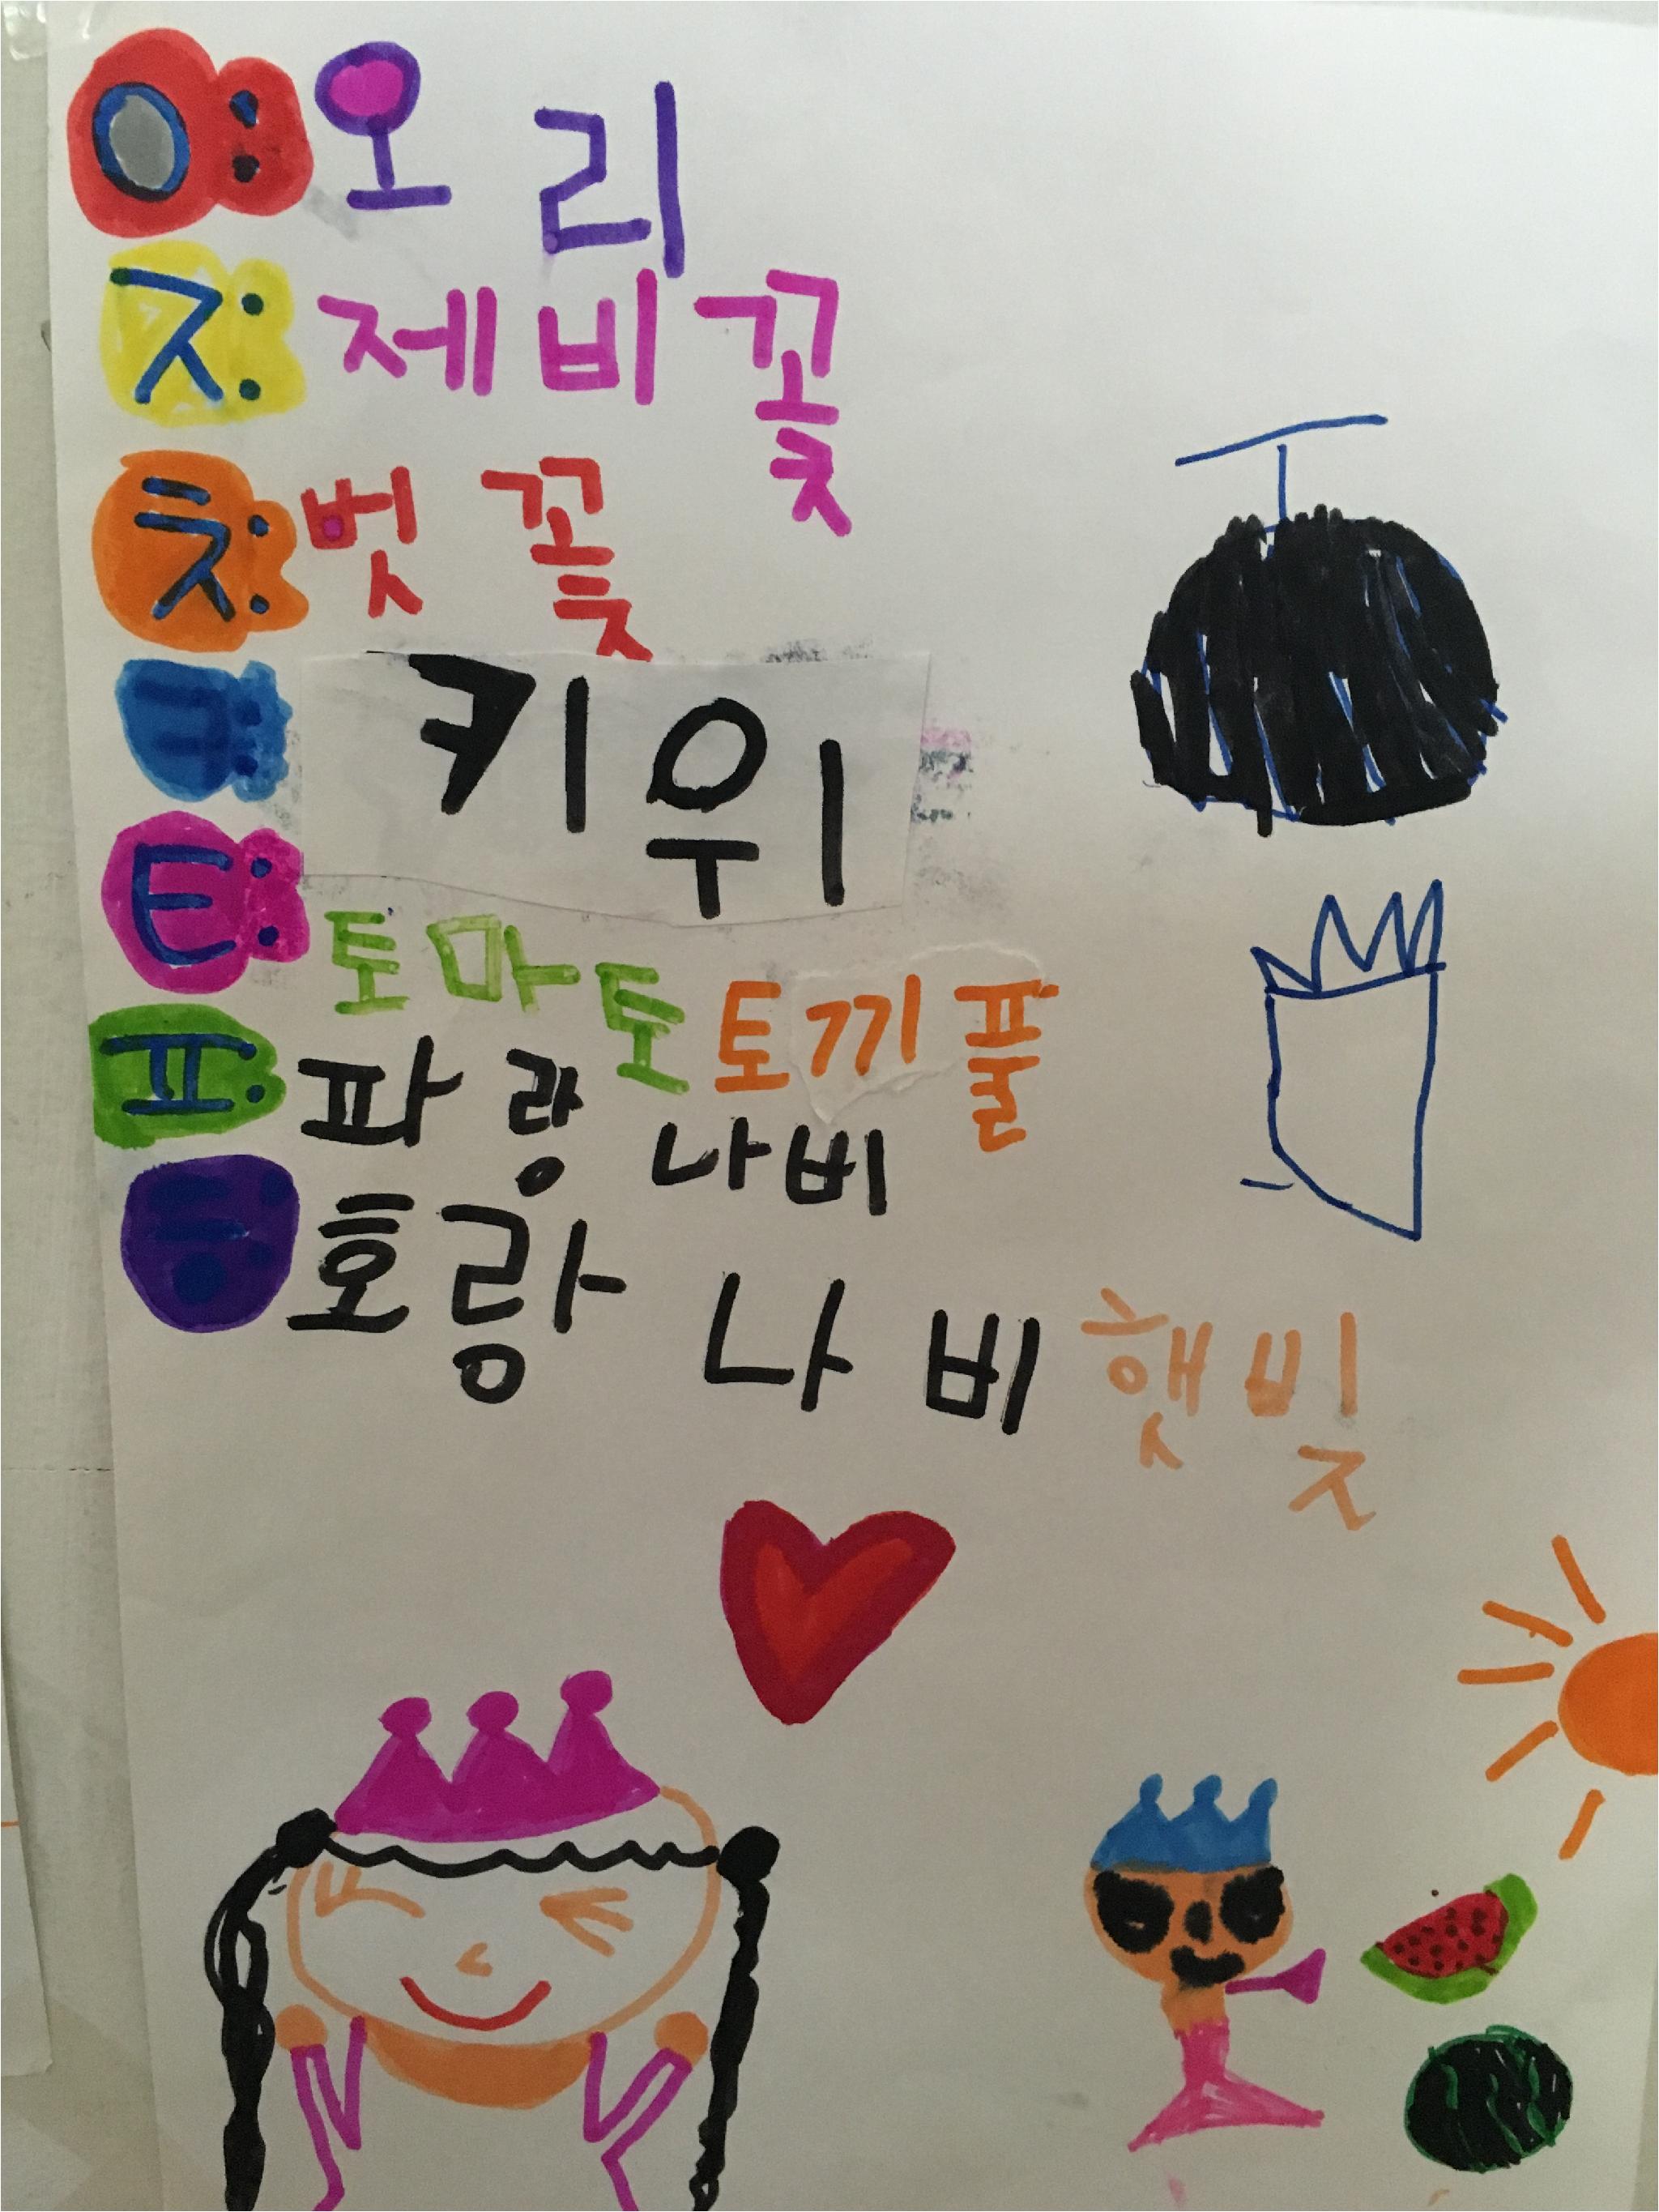 ㅇ: 오리
ㅈ: 제비꽃
ㅊ: 벗꽃
ㅋ: 키위
ㅌ: 토마토 토끼풀
ㅍ: 파랑나비
ㅎ: 호랑나비 햇빛